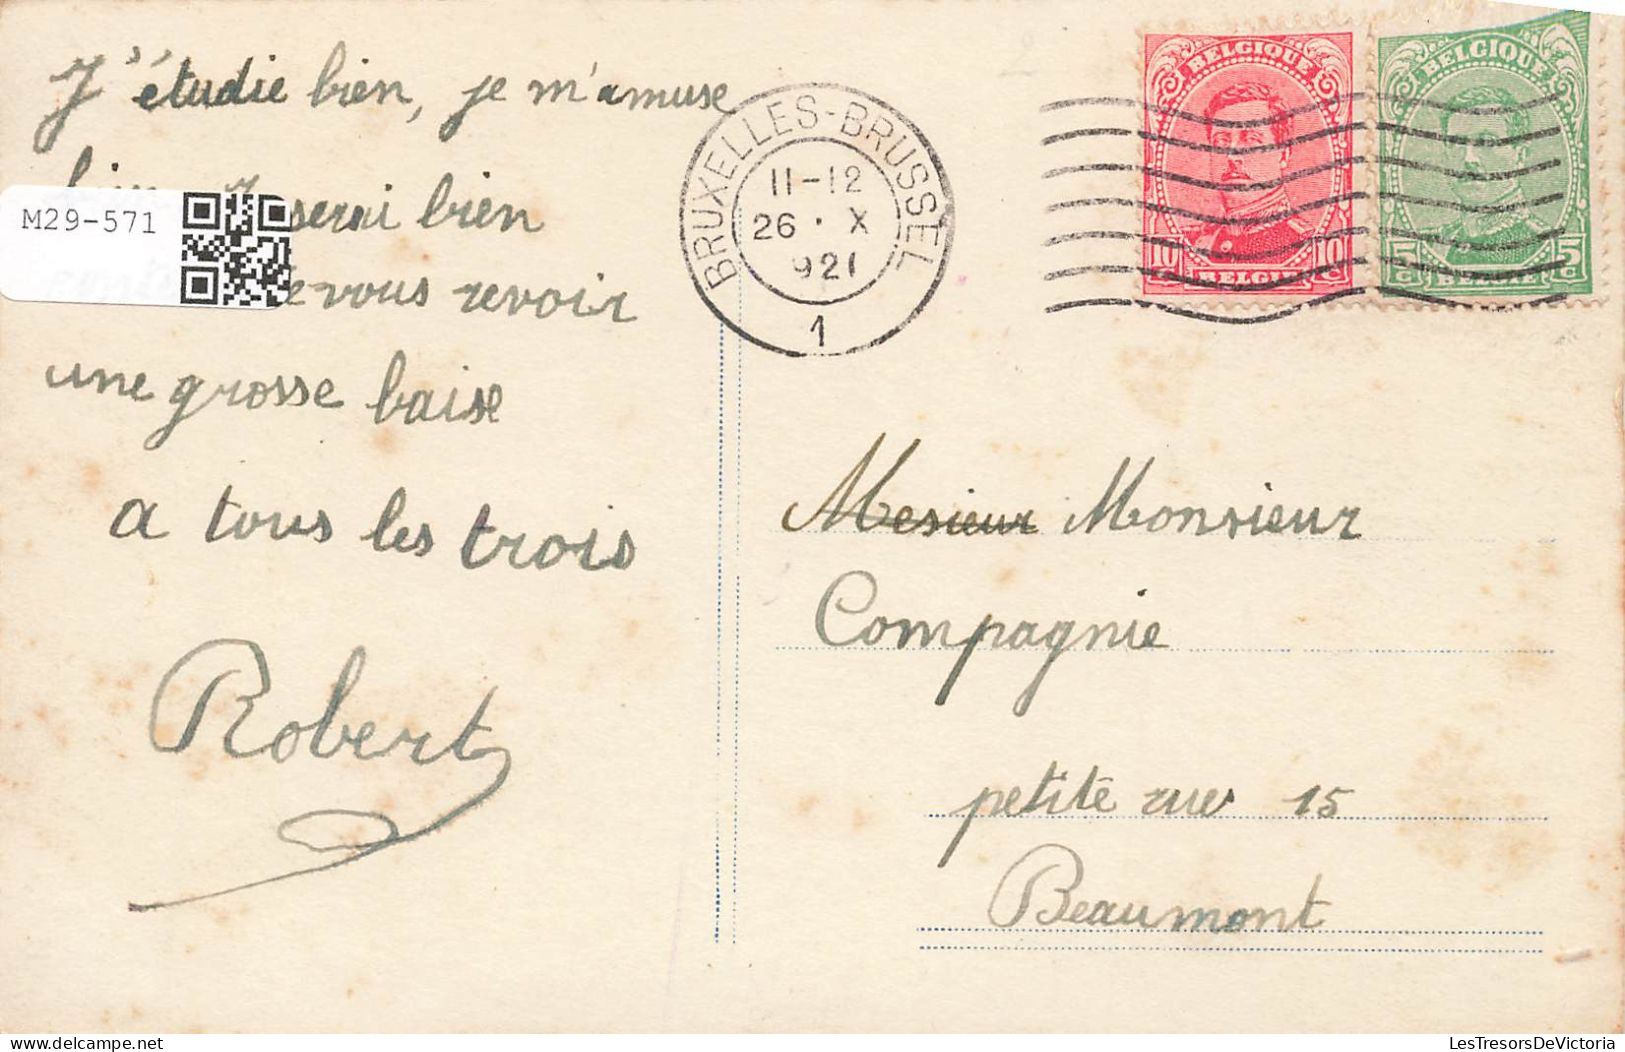 J'étudie bien, je m'amuse
bien serai bien
vous revoir
une grosse baise
a tous les trois
Robert
M29-571
BRUXELLES-BRUSSEL
11-12
26 · X
921
1
BELGIQUE
10 c 10 c
BELGIË
BELGIQUE
5 c 5 c
BELGIË
Mesieur Monsieur
Compagnie
petite rue 15
Beaumont
delcampe.net
LesTresorsDeVictoria